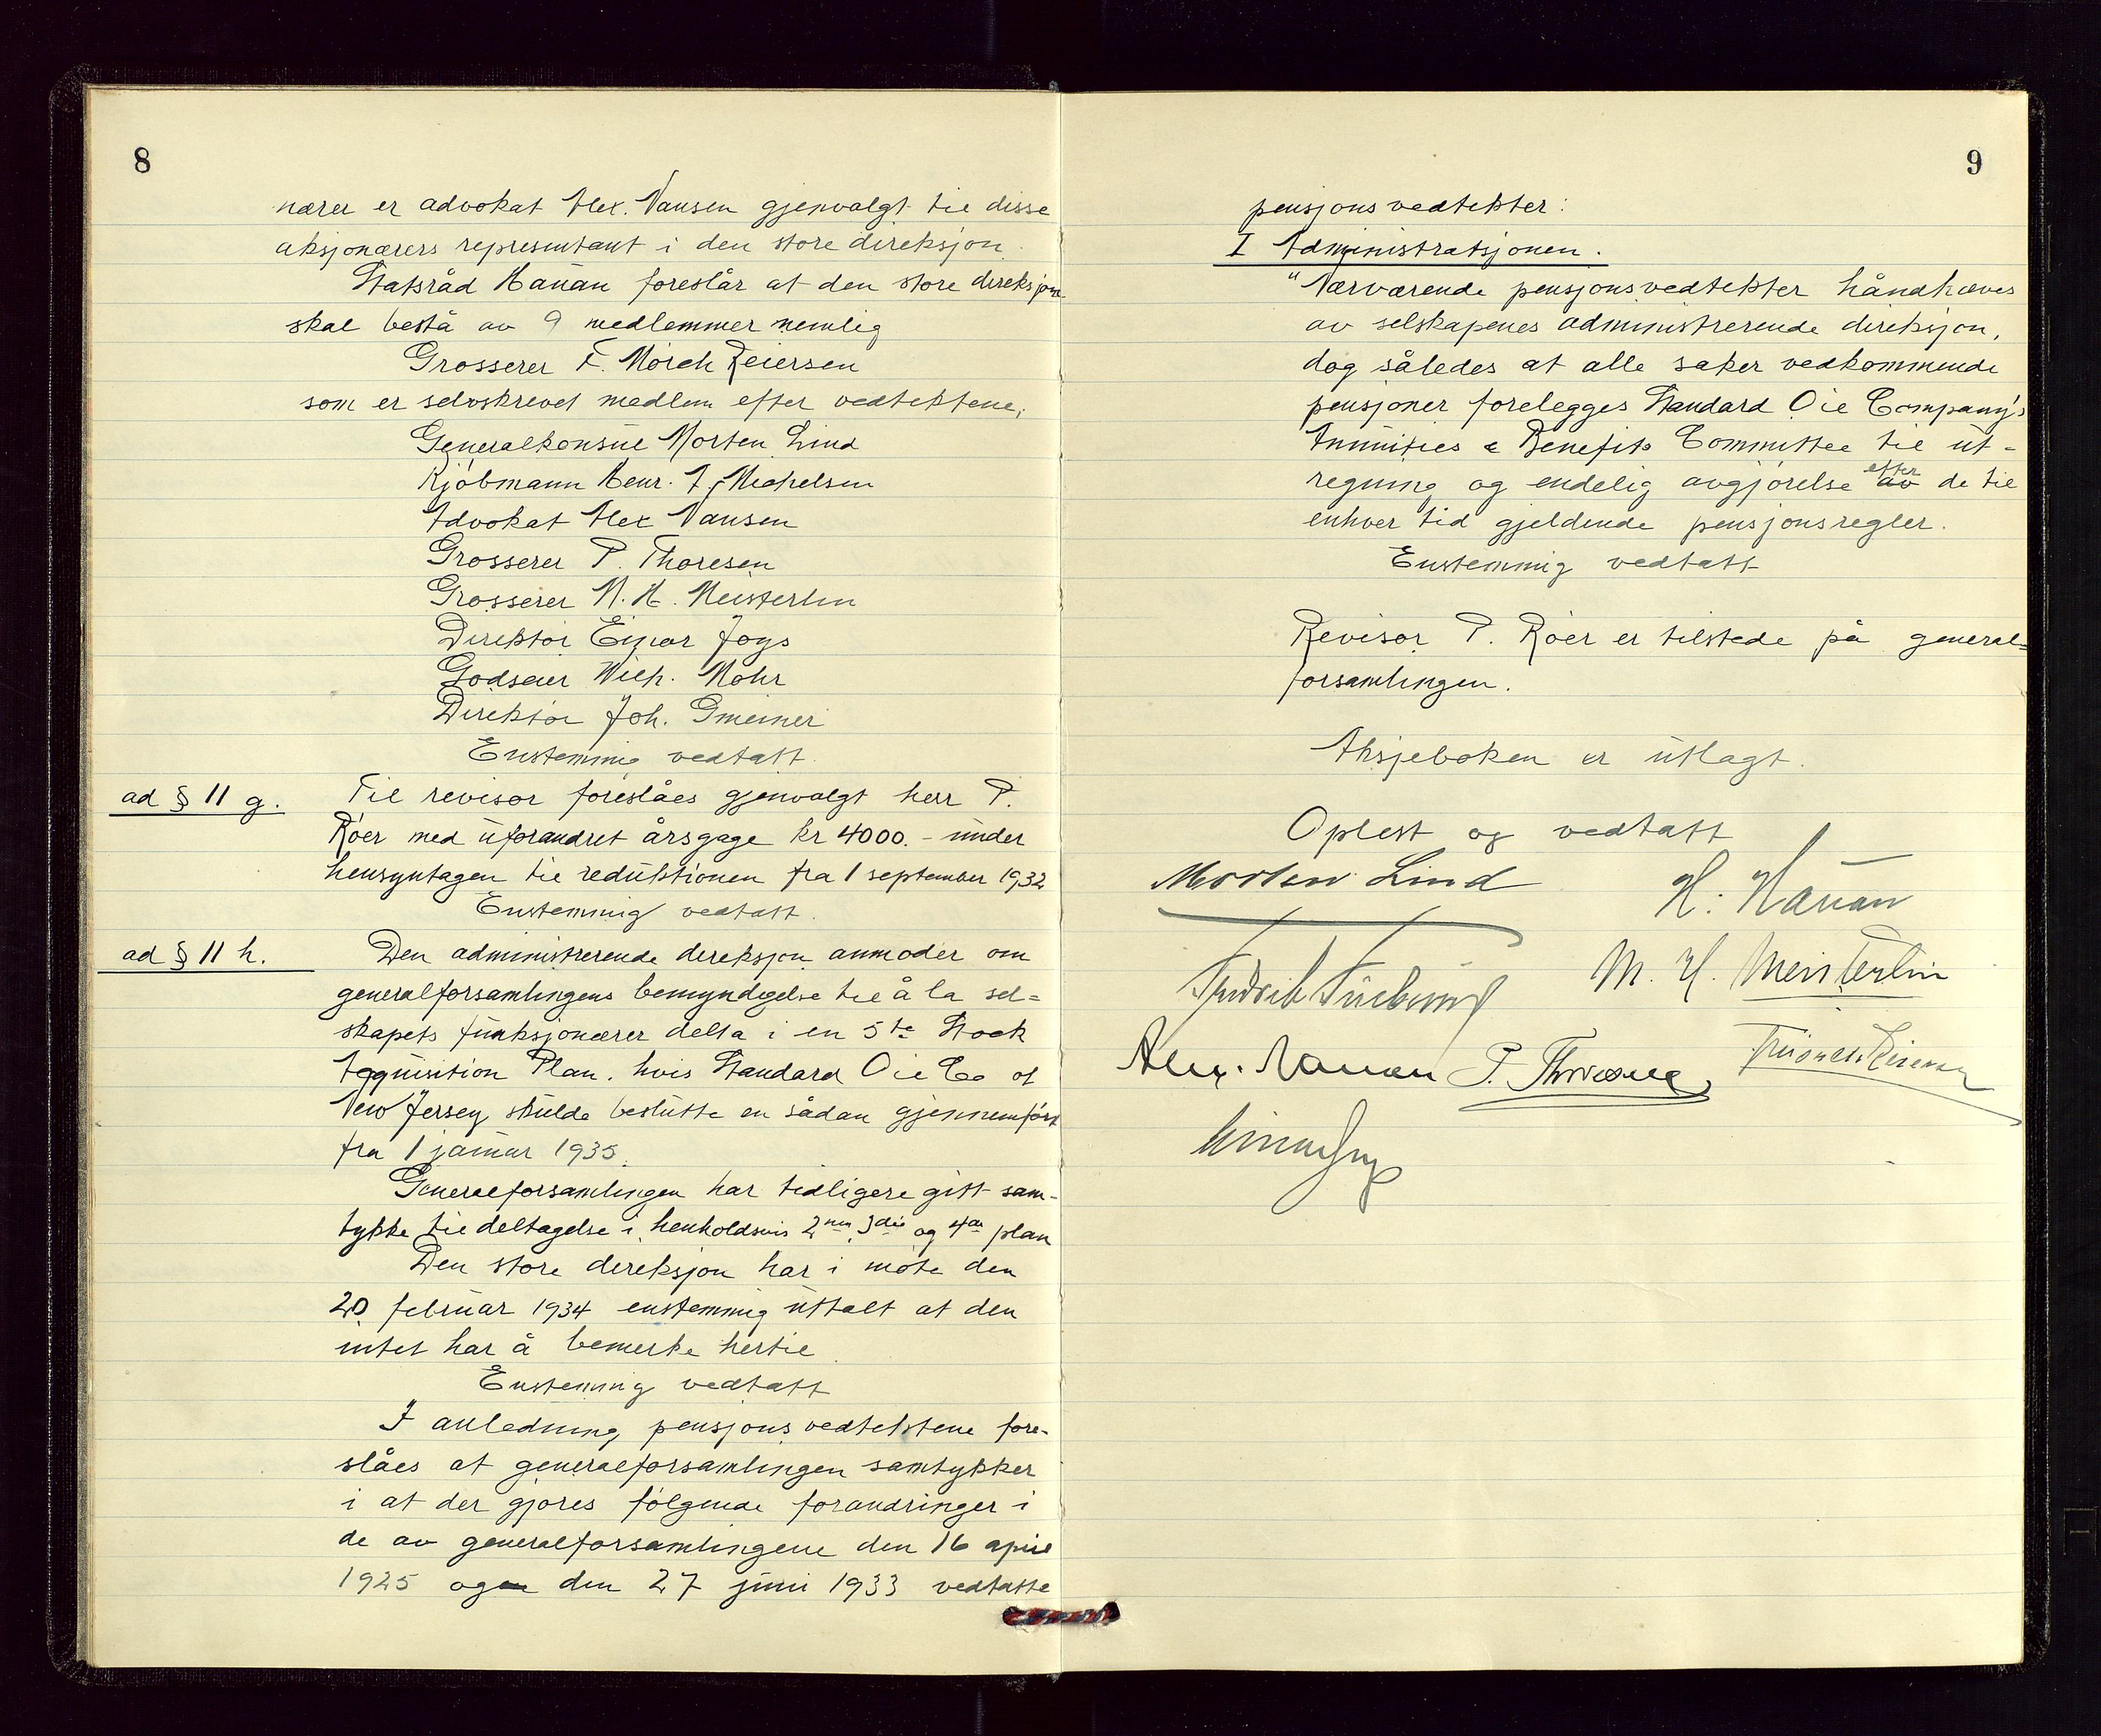 8
nærer er advokat Alex. Nansen gjenvalgt til disse
aksjonærers representant i den store direksjon.
Statsråd Hanan foreslår at den store direksjon
skal bestå av 9 medlemmer nemlig
Grosserer F. Mörch Reiersen
som er selvskrevet medlem efter vedtektene,
Generalkonsul Morten Lind
Kjöbmann Henr. A. Michelsen
Advokat Alex Nansen
Grosserer P. Thoresen
Grosserer M. H. Meisterlin
Direktör Einar Joys
Godseier Wilh. Mohr
Direktör Joh. Gmeiner
Enstemmig vedtatt.
ad § 11 g. Til revisor foreslåes gjenvalgt herr P.
Röer med uforandret årsgage kr 4000.- under
hensyntagen til reduktionen fra 1 september 1932
Enstemmig vedtatt.
ad § 11 h. Den administrerende direksjon anmoder om
generalforsamlingens bemyndigelse til å la sel=
skapets funksjonærer delta i en 5te Stock
Acquisition Plan. hvis Standard Oil Co of
New Jersey skulde beslutte en sådan gjennemfört
fra 1 januar 1935.
Generalforsamlingen har tidligere gitt sam-
tykke til deltagelse i henholdsvis 2nen, 3die og 4de plan
Den store direksjon har i möte den
20. februar 1934 enstemmig uttalt at den
intet har å bemerke hertil.
Enstemmig vedtatt
I anledning pensjonsvedtektene fore-
slåes at generalforsamlingen samtykker
i at der gjöres fölgende forandringer i
de av generalforsamlingene den 16 april
1925 og den 27 juni 1933 vedtatte
9
pensjonsvedtekter:
I Administratsjonen.
"Nærværende pensjonsvedtekter håndhæves
av selskapenes administrerende direksjon,
dog således at alle saker vedkommende
pensjoner forelegges Standard Oil Company's
Annuities & Benefits Committee til ut-
regning og endelig avgjörelse efter av de til
enhver tid gjeldende pensjonsregler.
Enstemmig vedtatt
Revisor P. Röer er tilstede på general=
forsamlingen.
Aksjeboken er utlagt.
Oplest og vedtatt
Morten Lind H. Hanan
Fredrik M. H. Meisterlin
Alex. Nansen P. Thoresen